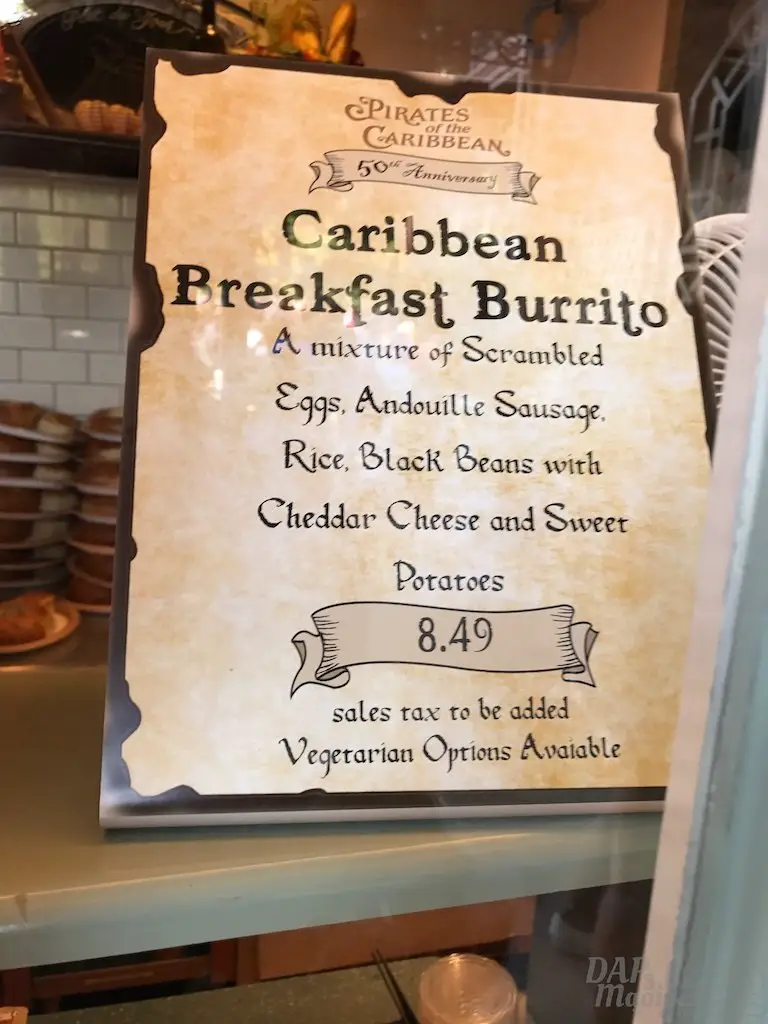 PIRATES
of the
CARIBBEAN
50th Anniversary
Caribbean
Breakfast Burrito
A mixture of Scrambled
Eggs, Andouille Sausage,
Rice, Black Beans with
Cheddar Cheese and Sweet
Potatoes
8.49
sales tax to be added
Vegetarian Options Avaiable